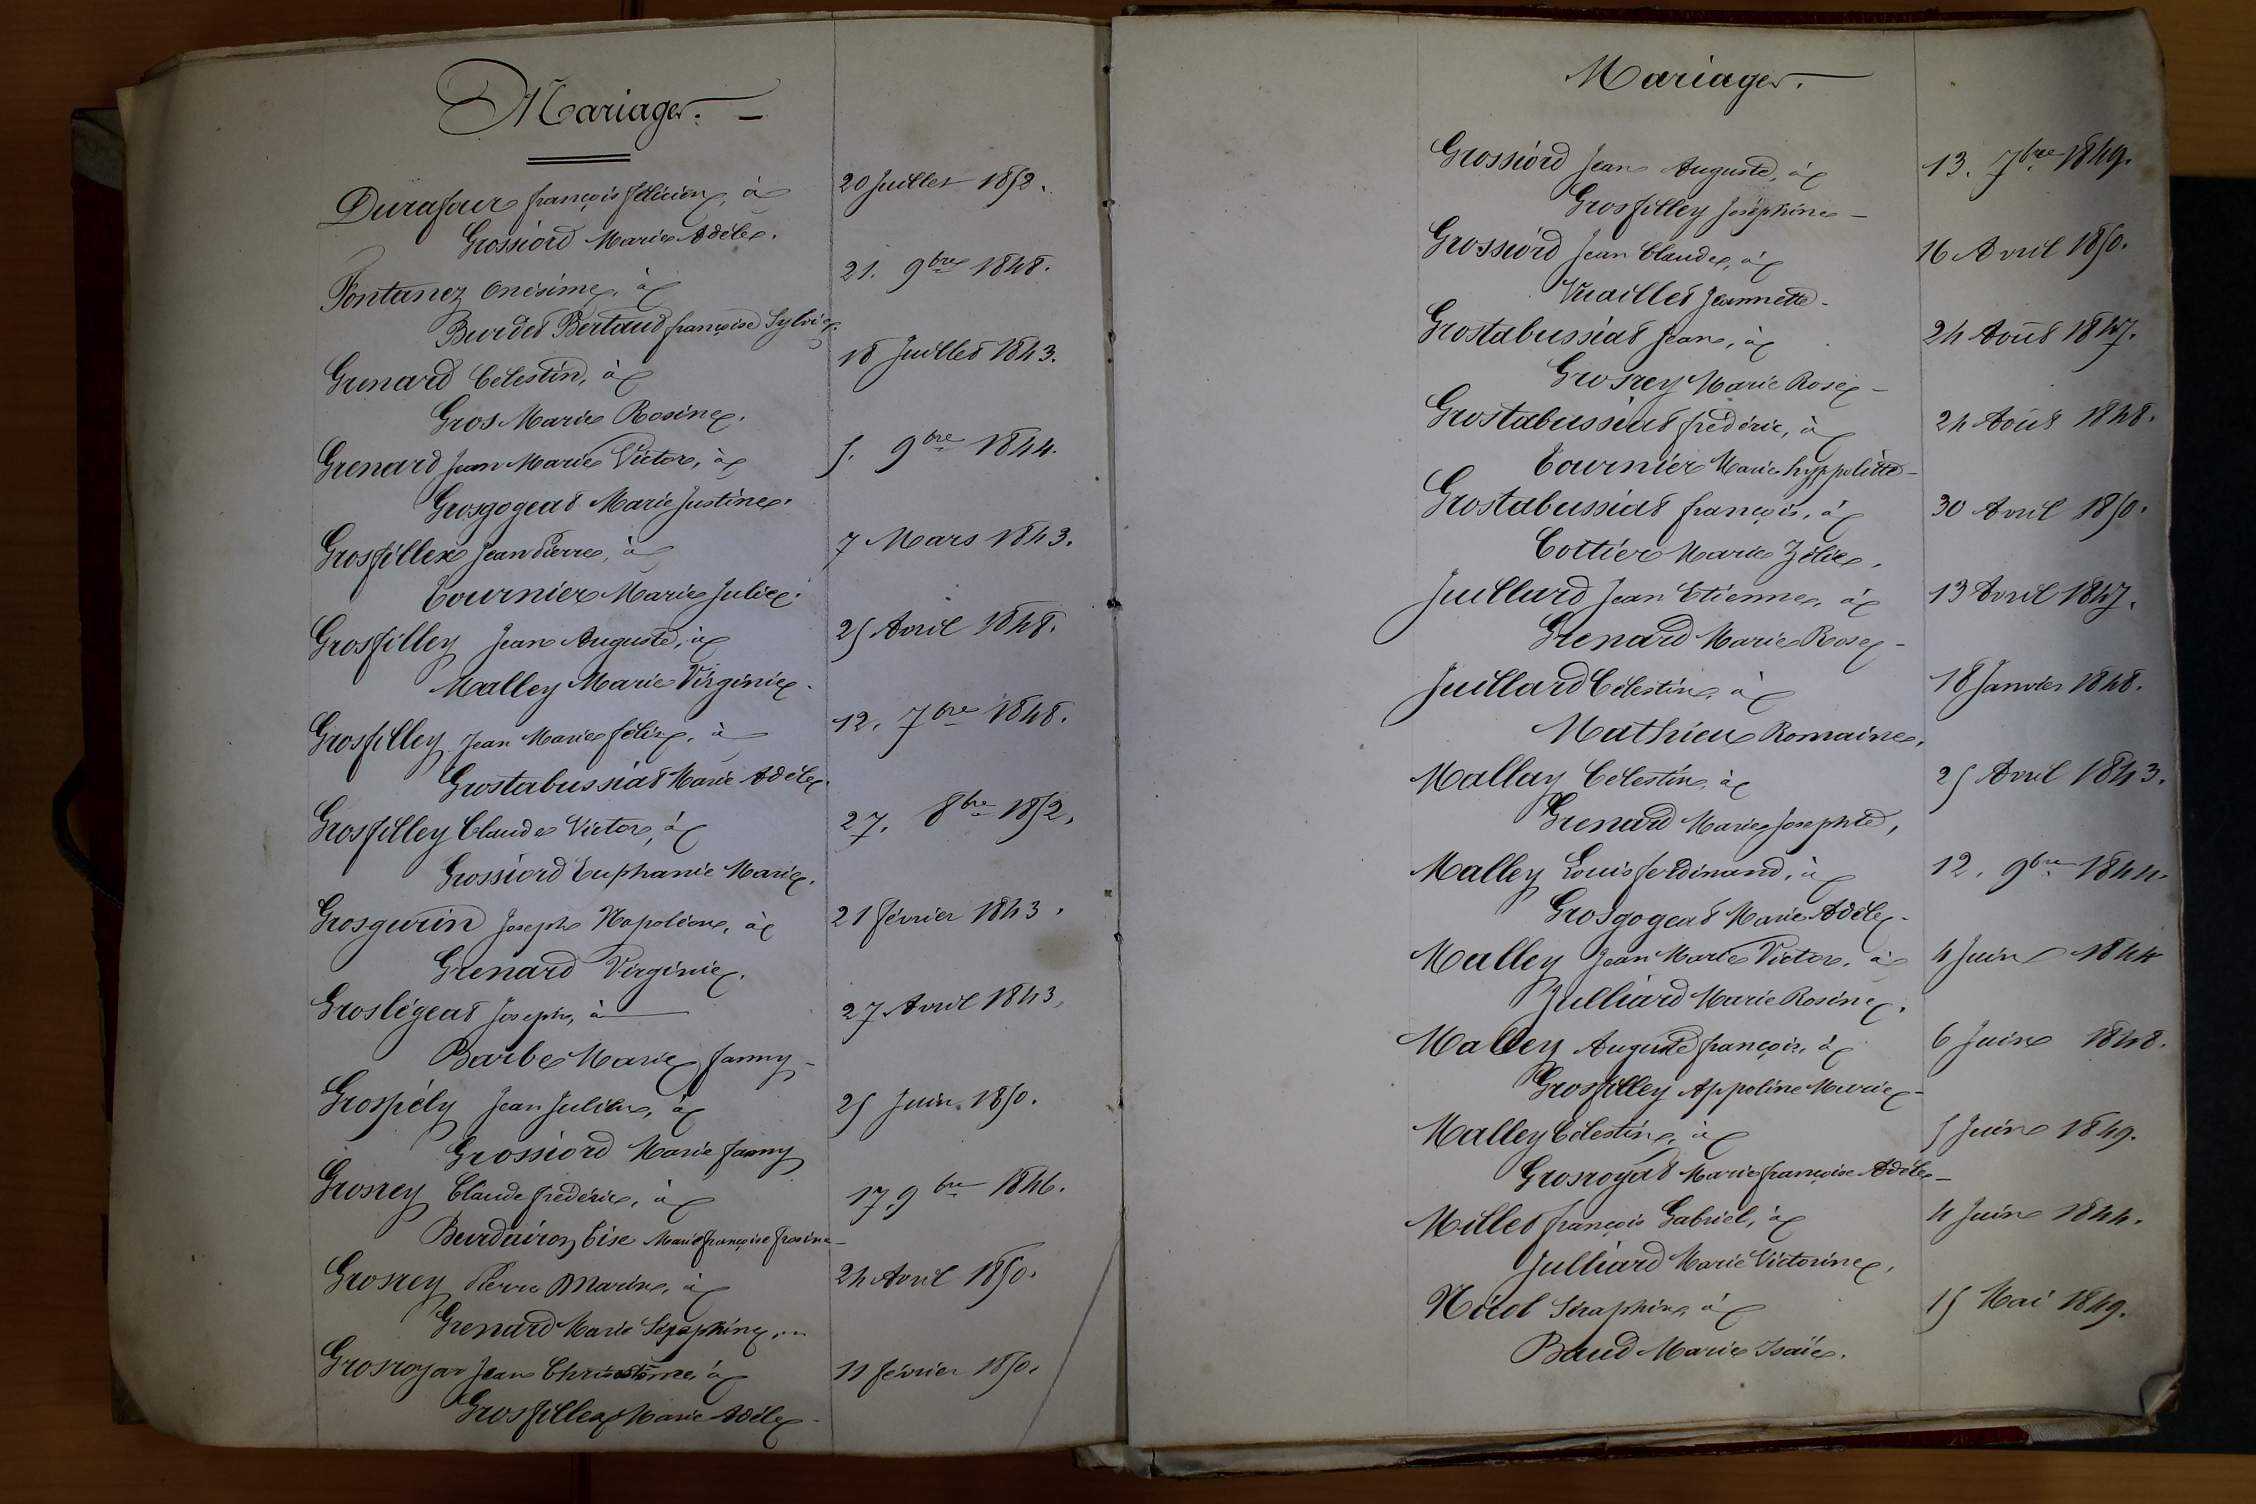 Mariages.
Durafour françois félicien, à 20 Juillet 1852.
Grossiord Marie Adèle.
Fontanez Onésime, à 21. 9bre 1848.
Burdet Bertaud françoise Sylvie
Grenard Célestin, à 18 Juillet 1843.
Gros Marie Rosine.
Grenard Jean Marie Victor, à 5. 9bre 1844.
Grosgogeat Marie Justine.
Grosfillex Jean Pierre, à 7 Mars 1843.
Tournier Marie Julie.
Grosfilley Jean Auguste, à 25 Avril 1848.
Malley Marie Virginie.
Grosfilley Jean Marie félix, à 12. 7bre 1848.
Grostabussiat Marie Adèle.
Grosfilley Claude Victor, à 27. 8bre 1852,
Grossiord Euphanie Marie.
Grosgurin Joseph Napoléon, à 21 février 1843.
Grenard Virginie.
Groslégeat Joseph, à 27 Avril 1843,
Barbe Marie fanny
Grospély Jean Julien, à 25 Juin 1850.
Grossiord Marie fanny
Grosrey Claude frédéric, à 17. 9bre 1846.
Burdairon Cise Marie françoise frosine
Grosrey Pierre Marin, à 24 Avril 1850.
Grenard Marie Séraphine
Grosroyat Jean Chrisostôme, à 11 février 1850.
Grosfillex Marie Adèle
Mariages.
Grossiord Jean Auguste, à 13. 7bre 1849.
Grosfilley Joséphine
Grossiord Jean Claude, à 16 Avril 1850.
Vuaillet Jeannette
Grostabussiat Jean, à 24 Août 1847.
Grosrey Marie Rose
Grostabussiat frédéric, à 24 Août 1848.
Tournier Marie hyppolitte
Grostabussiat françois, à 30 Avril 1850.
Cottier Marie Zélie.
Juillard Jean Etienne, à 13 Avril 1847.
Grenard Marie Rose
Juillard Célestin, à 18 Janvier 1848.
Mathieu Romaine.
Mallay Célestin, à 25 Avril 1843.
Grenard Marie Josephte,
Malley Louis ferdinand, à 12. 9bre 1844.
Grosgogeat Marie Adèle
Malley Jean Marie Victor, à 4 Juin 1844
Julliard Marie Rosine.
Malley Auguste françois, à 6 Juin 1848.
Grosfilley Appoline Marie
Malley Célestin, à 5 Juin 1849.
Grosroyat Marie françoise Adèle
Millet françois Gabriel, à 4 Juin 1844.
Julliard Marie Victorine.
Nicol Séraphin, à 15 Mai 1849.
Baud Marie Isaïe.